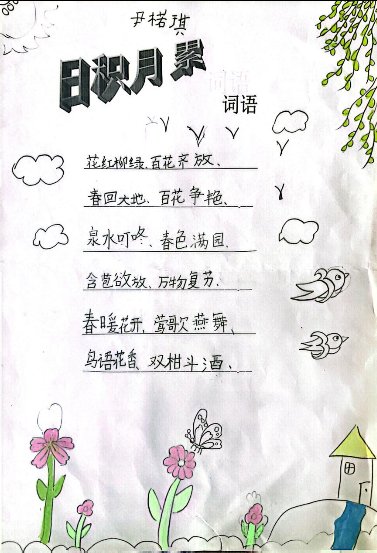 尹楉琪
日积月累
词语
花红柳绿、百花齐放、
春回大地、百花争艳、
泉水叮咚、春色满园、
含苞欲放、万物复苏、
春暖花开、莺歌燕舞、
鸟语花香、双柑斗酒、